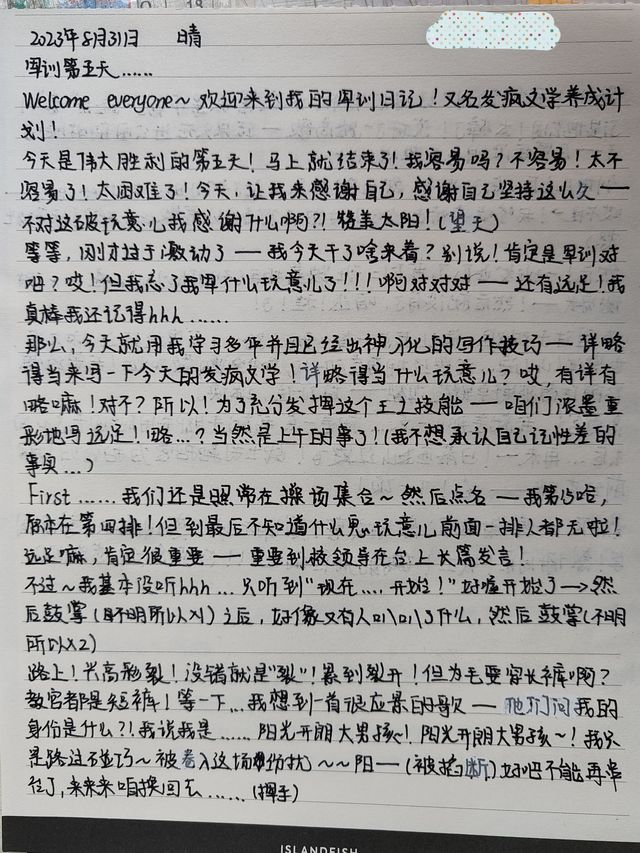 2023年8月31日 晴
军训第五天……
Welcome everyone~欢迎来到我的军训日记！又名发疯文学养成计
划！
今天是伟大胜利的第五天！马上就结束了！我容易吗？不容易！太不
容易了！太困难了！今天，让我来感谢自己，感谢自己坚持这么久——
不对这破玩意儿我感谢什么啊?!赞美太阳！(望天)
等等，刚才过于激动了——我今天干了啥来着？别说！肯定是军训对
吧？哎！但我忘了我军什么玩意儿了！！！啊对对对——还有远足！我
真棒我还记得hhh……
那么，今天就用我学习多年并且已经出神入化的写作技巧——详略
得当来写一下今天的发疯文学！详略得当什么玩意儿？哎，有详有
略嘛！对不？所以！为了充分发挥这个王之技能——咱们浓墨重
彩地写远足！略…？当然是上午的事了！(我不想承认自己记性差的
事实…)
First……我们还是照常在操场集合~然后点名——我第15哈，
原本在第四排！但到最后不知道什么鬼玩意儿前面一排人都无啦！
远足嘛，肯定很重要——重要到被领导在台上长篇发言！
不过~我基本没听hhh…只听到"现在…，开始！"好嘘开始了→然
后鼓掌(不明所以X1)之后，好像又有人叭叭了什么，然后鼓掌(不明
所以X2)
路上！兴高彩裂！没错就是"裂"！累到裂开！但为毛要穿长裤啊？
教官都是短裤！等一下…我想到一首很应景的歌——他们问我的
身份是什么?!我说我是……阳光开朗大男孩~！阳光开朗大男孩~！我只
是路过碰巧~被卷入这场纷扰~~阳—(被掐断)好吧不能再串
往了，来来来咱换回去……(挥手)
ISLANDFISH